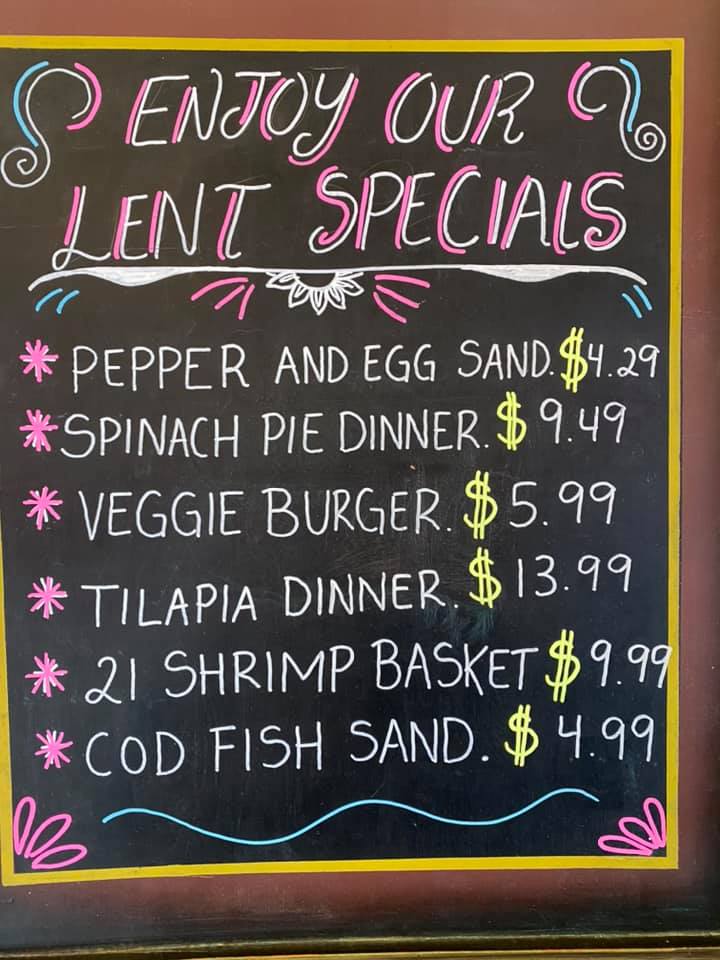 ENJOY OUR
LENT SPECIALS
* PEPPER AND EGG SAND. $4.29
* SPINACH PIE DINNER. $9.49
* VEGGIE BURGER. $5.99
* TILAPIA DINNER. $13.99
* 21 SHRIMP BASKET $9.99
* COD FISH SAND. $4.99